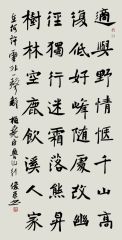 適與野情愜千山高
復低好峰隨處改幽
徑獨行迷霜落熊昇
樹林空鹿飲溪人家
在何許雲外一聲雞 梅堯臣